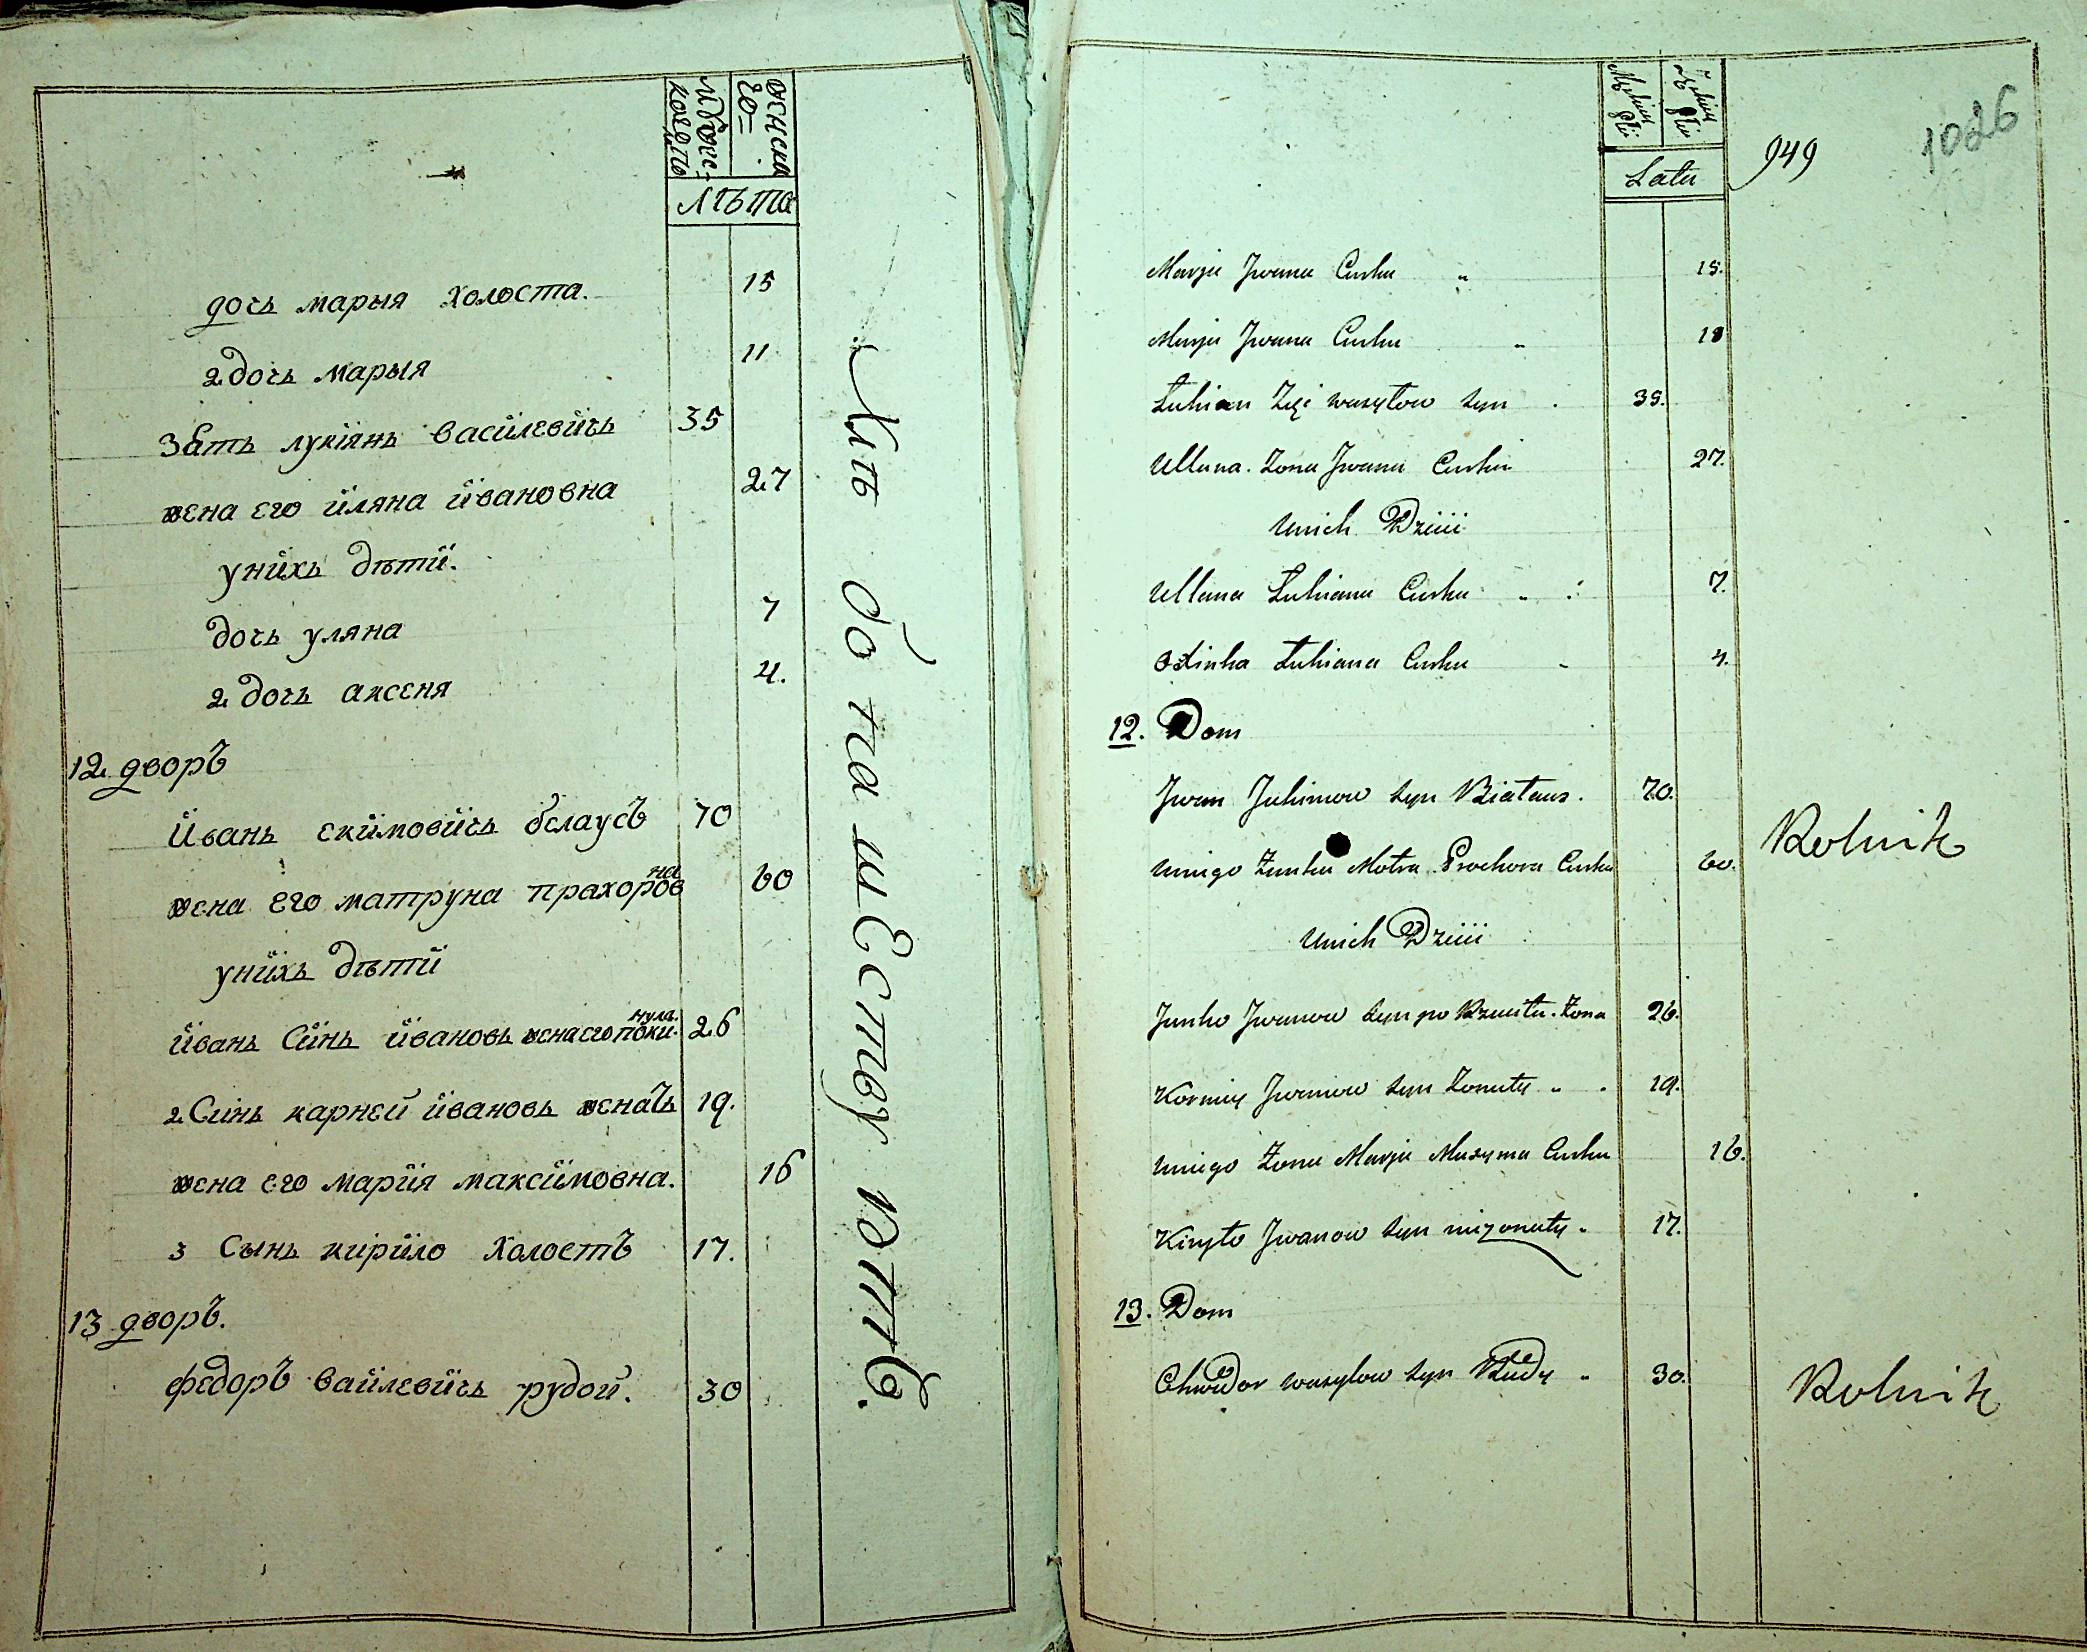 женска
го=
мужс=
кого
лѣта
дочь марыя холоста. 15
2 дочь марыя 11
Зять лукіянъ васіилевіичь 35
жена его іиляна іивановна 27
уніихъ дѣтіи.
дочь уляна 7
2 дочь аксеня 4.
12 дворъ
Іиванъ екіимовіичь бѣлаусъ 70
жена его матруна прахоровна 60
уніихъ дѣтіи
іиванъ Сіинъ іивановъ жена его покинула. 26
2 Синъ карней іивановъ женатъ 19.
жена его маріия максіимовна. 16
3 Сынъ киріило холостъ 17.
13 дворъ.
федоръ ваіилевіичь рудой. 30
Хлѣбопашествуютъ.
949
1026
Lata
Marja Jwana Curka 15.
Marja Jwana Curka 11
Łukian Zięć wasyłow syn 35.
Ullana. Zona Jwana Curka 27.
Unich Dzieci
Ullana Łukiana Curka 7.
Oxinka Łukiana Curka 4.
12. Dom
Jwan Jukimow syn Białaus. 70.
Uniego Zonka Motra Prochora Curka 60.
Unich Dzieci
Janko Jwanow syn porzuciła. Zona 26.
Korniey Jwanow syn Zonaty 19.
Uniego Zona Marja Maxyma Curka 16.
Kiryło Jwanow syn niezonaty 17.
Rolnik
13. Dom
Chwedor wasylow syn Rudy 30.
Rolnik